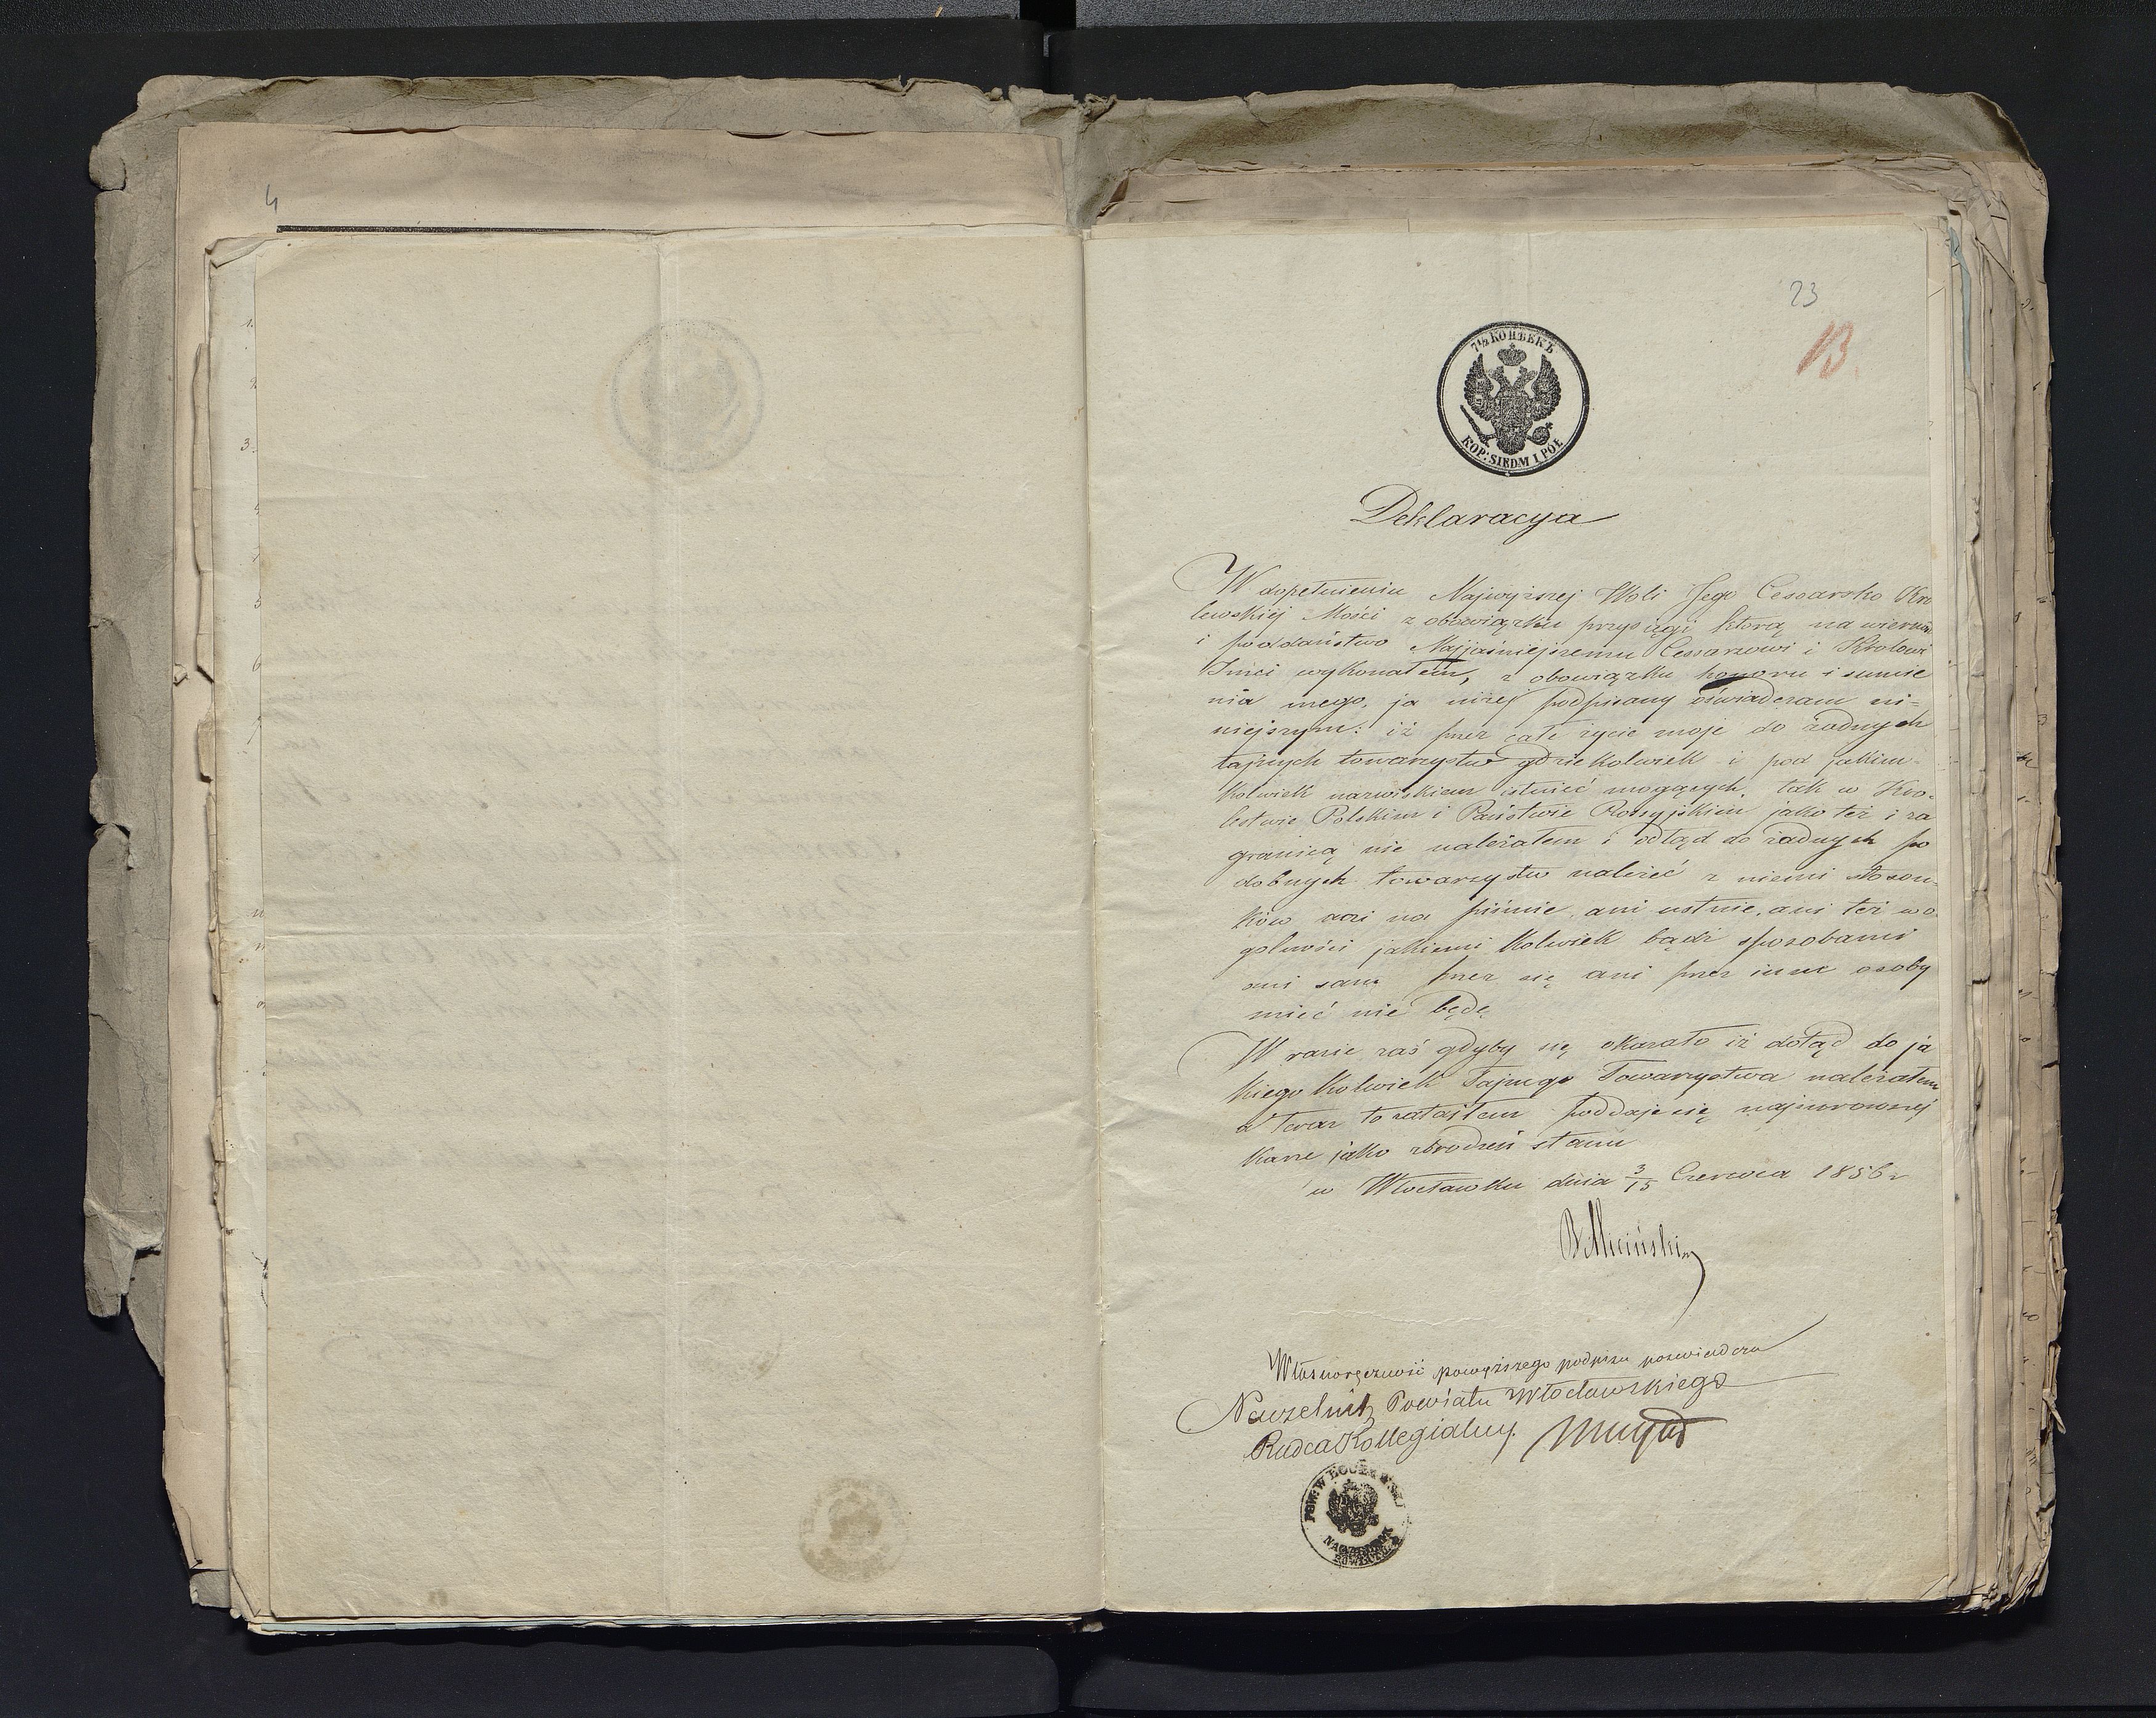 4
23
13.
7½ КОПѢЕКЪ
KOP: SIEDM I PÓŁ
Deklaracya
W dopełnieniu Najwyższej Woli Jego Cesarsko Kró
lewskiéj Mości z obowiązku przysięgi którą na wierność
i poddaństwo Najjaśniejszemu Cesarzowi i Królowi
Jmci wykonałem, z obowiązku honoru i sumie
nia mego, ja niżej podpisany oświadczam ni-
niejszym: iż przez całe życie moje do żadnych
tajnych towarzystw gdziekolwiek i pod jakim-
kolwiek nazwiskiem istnieć mogących, tak w Kró-
lestwie Polskim i Państwie Rossyjskim jako też i za
granicą nie należałem i odtąd do żadnych po
dobnych towarzystw należeć z niemi stosun-
ków ani na piśmie, ani ustnie, ani też w o
gólności jakiemi kolwiek bądź sposobami
ani sam przez się ani przez inne osoby
mieć nie będę
W razie zaś gdyby się okazało iż dotąd do ja
kiego kolwiek Tajnego Towarzystwa należałem
a teraz to zataiłem poddaje się najsurowszej
karze jako zbrodzień stanu
w Włocławku dnia 3/15 Czerwca 1856 r
B Miciński
Własnoręczność powyższego podpisu poświadcza
Naczelnik Powiatu Włocławskiego
Radca Kollegialny.
POW: WŁOCŁAWSKI
NACZELNIK
POWIATU